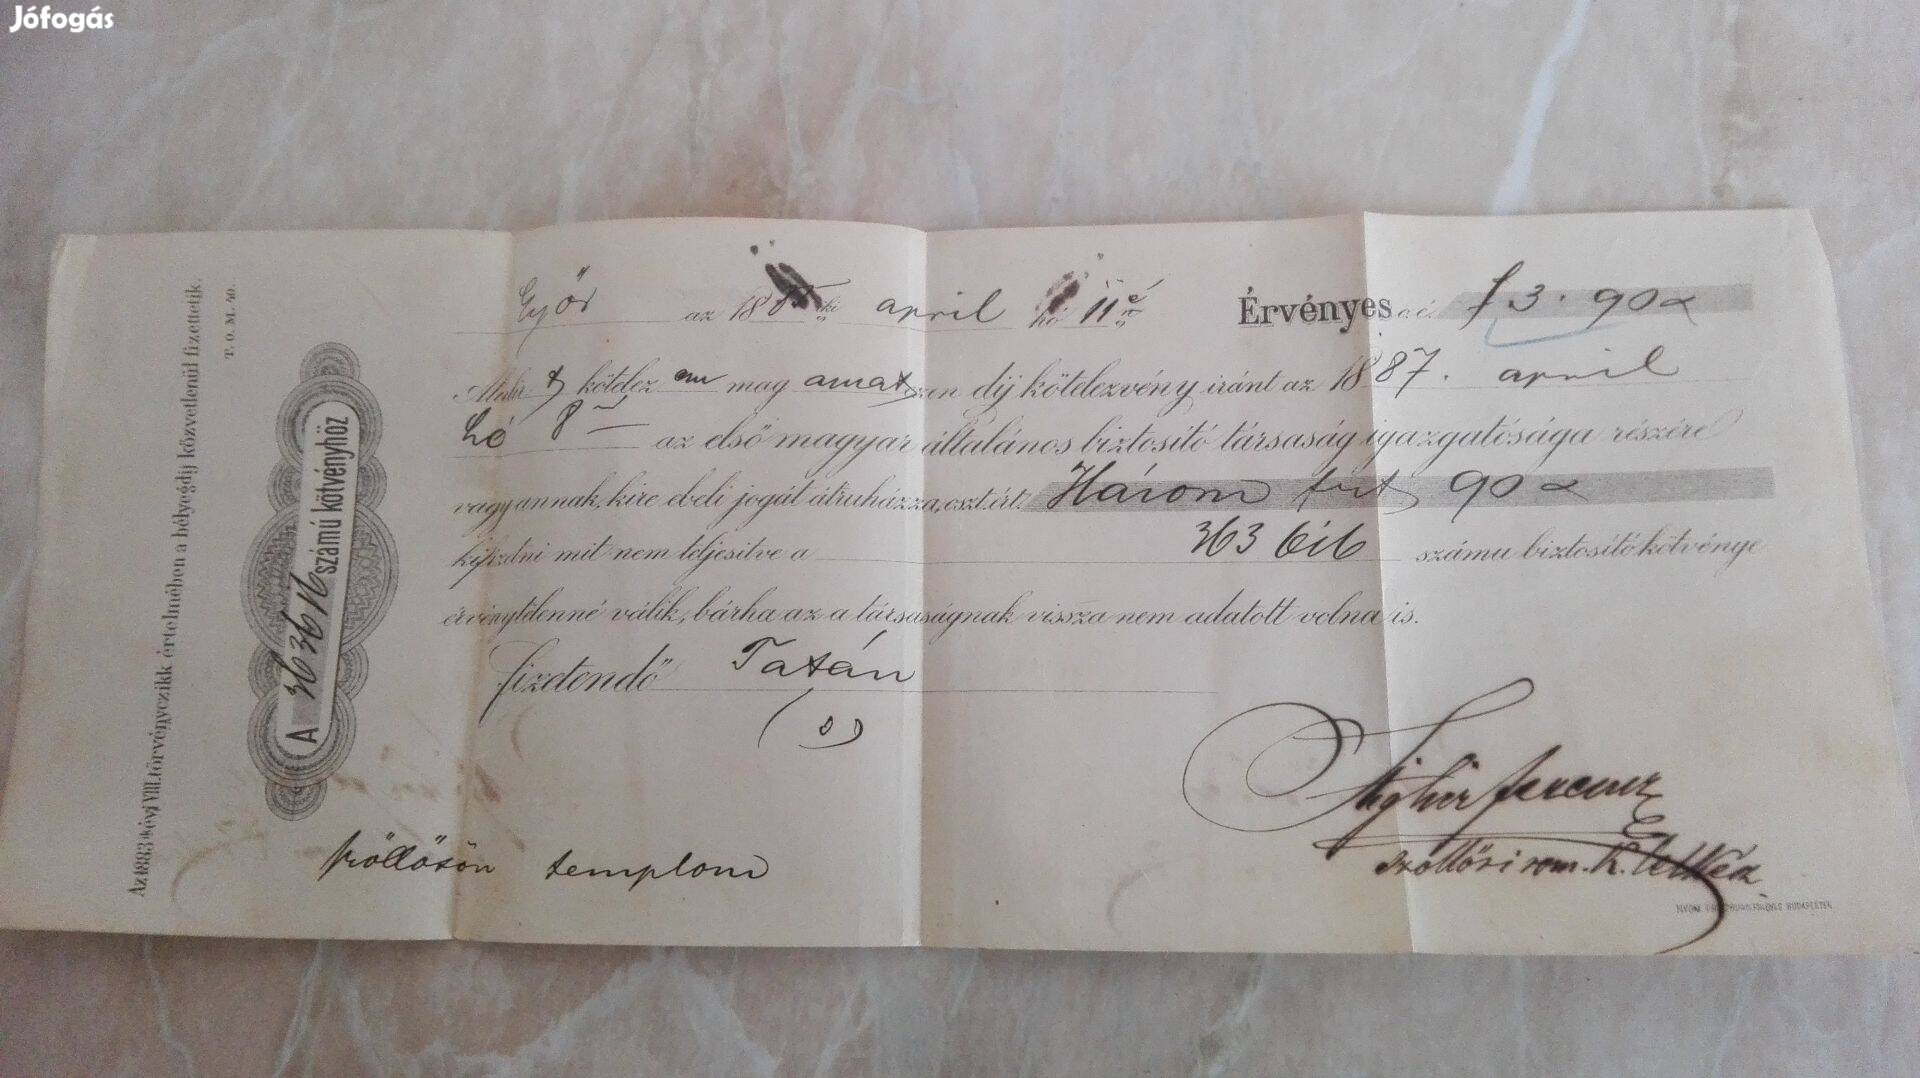 Jófogás
Az 1883 évi VIII. törvényczikk értelmében a bélyegdij közvetlenül fizettetik.
T. O. M. 40.
A 363616 számú kötvényhöz
Győr az 188 ki april hó 11é
Érvényes o.é. f 3. 90
Alulirt kötelez em mag amat ezen dij kötelezvény iránt az 1887. april
hó 8 az első magyar általános biztositó társaság igazgatósága részére
vagy annak, kire ebeli jogát átruházza, oszt. ért. Három frt 90
kifizetni mit nem teljesitve a 363 616 számu biztositó kötvénye
érvénytelenné válik, bárha az a társaságnak vissza nem adatott volna is.
fizetendő Tatán
Ferencz
rom. k.
templom